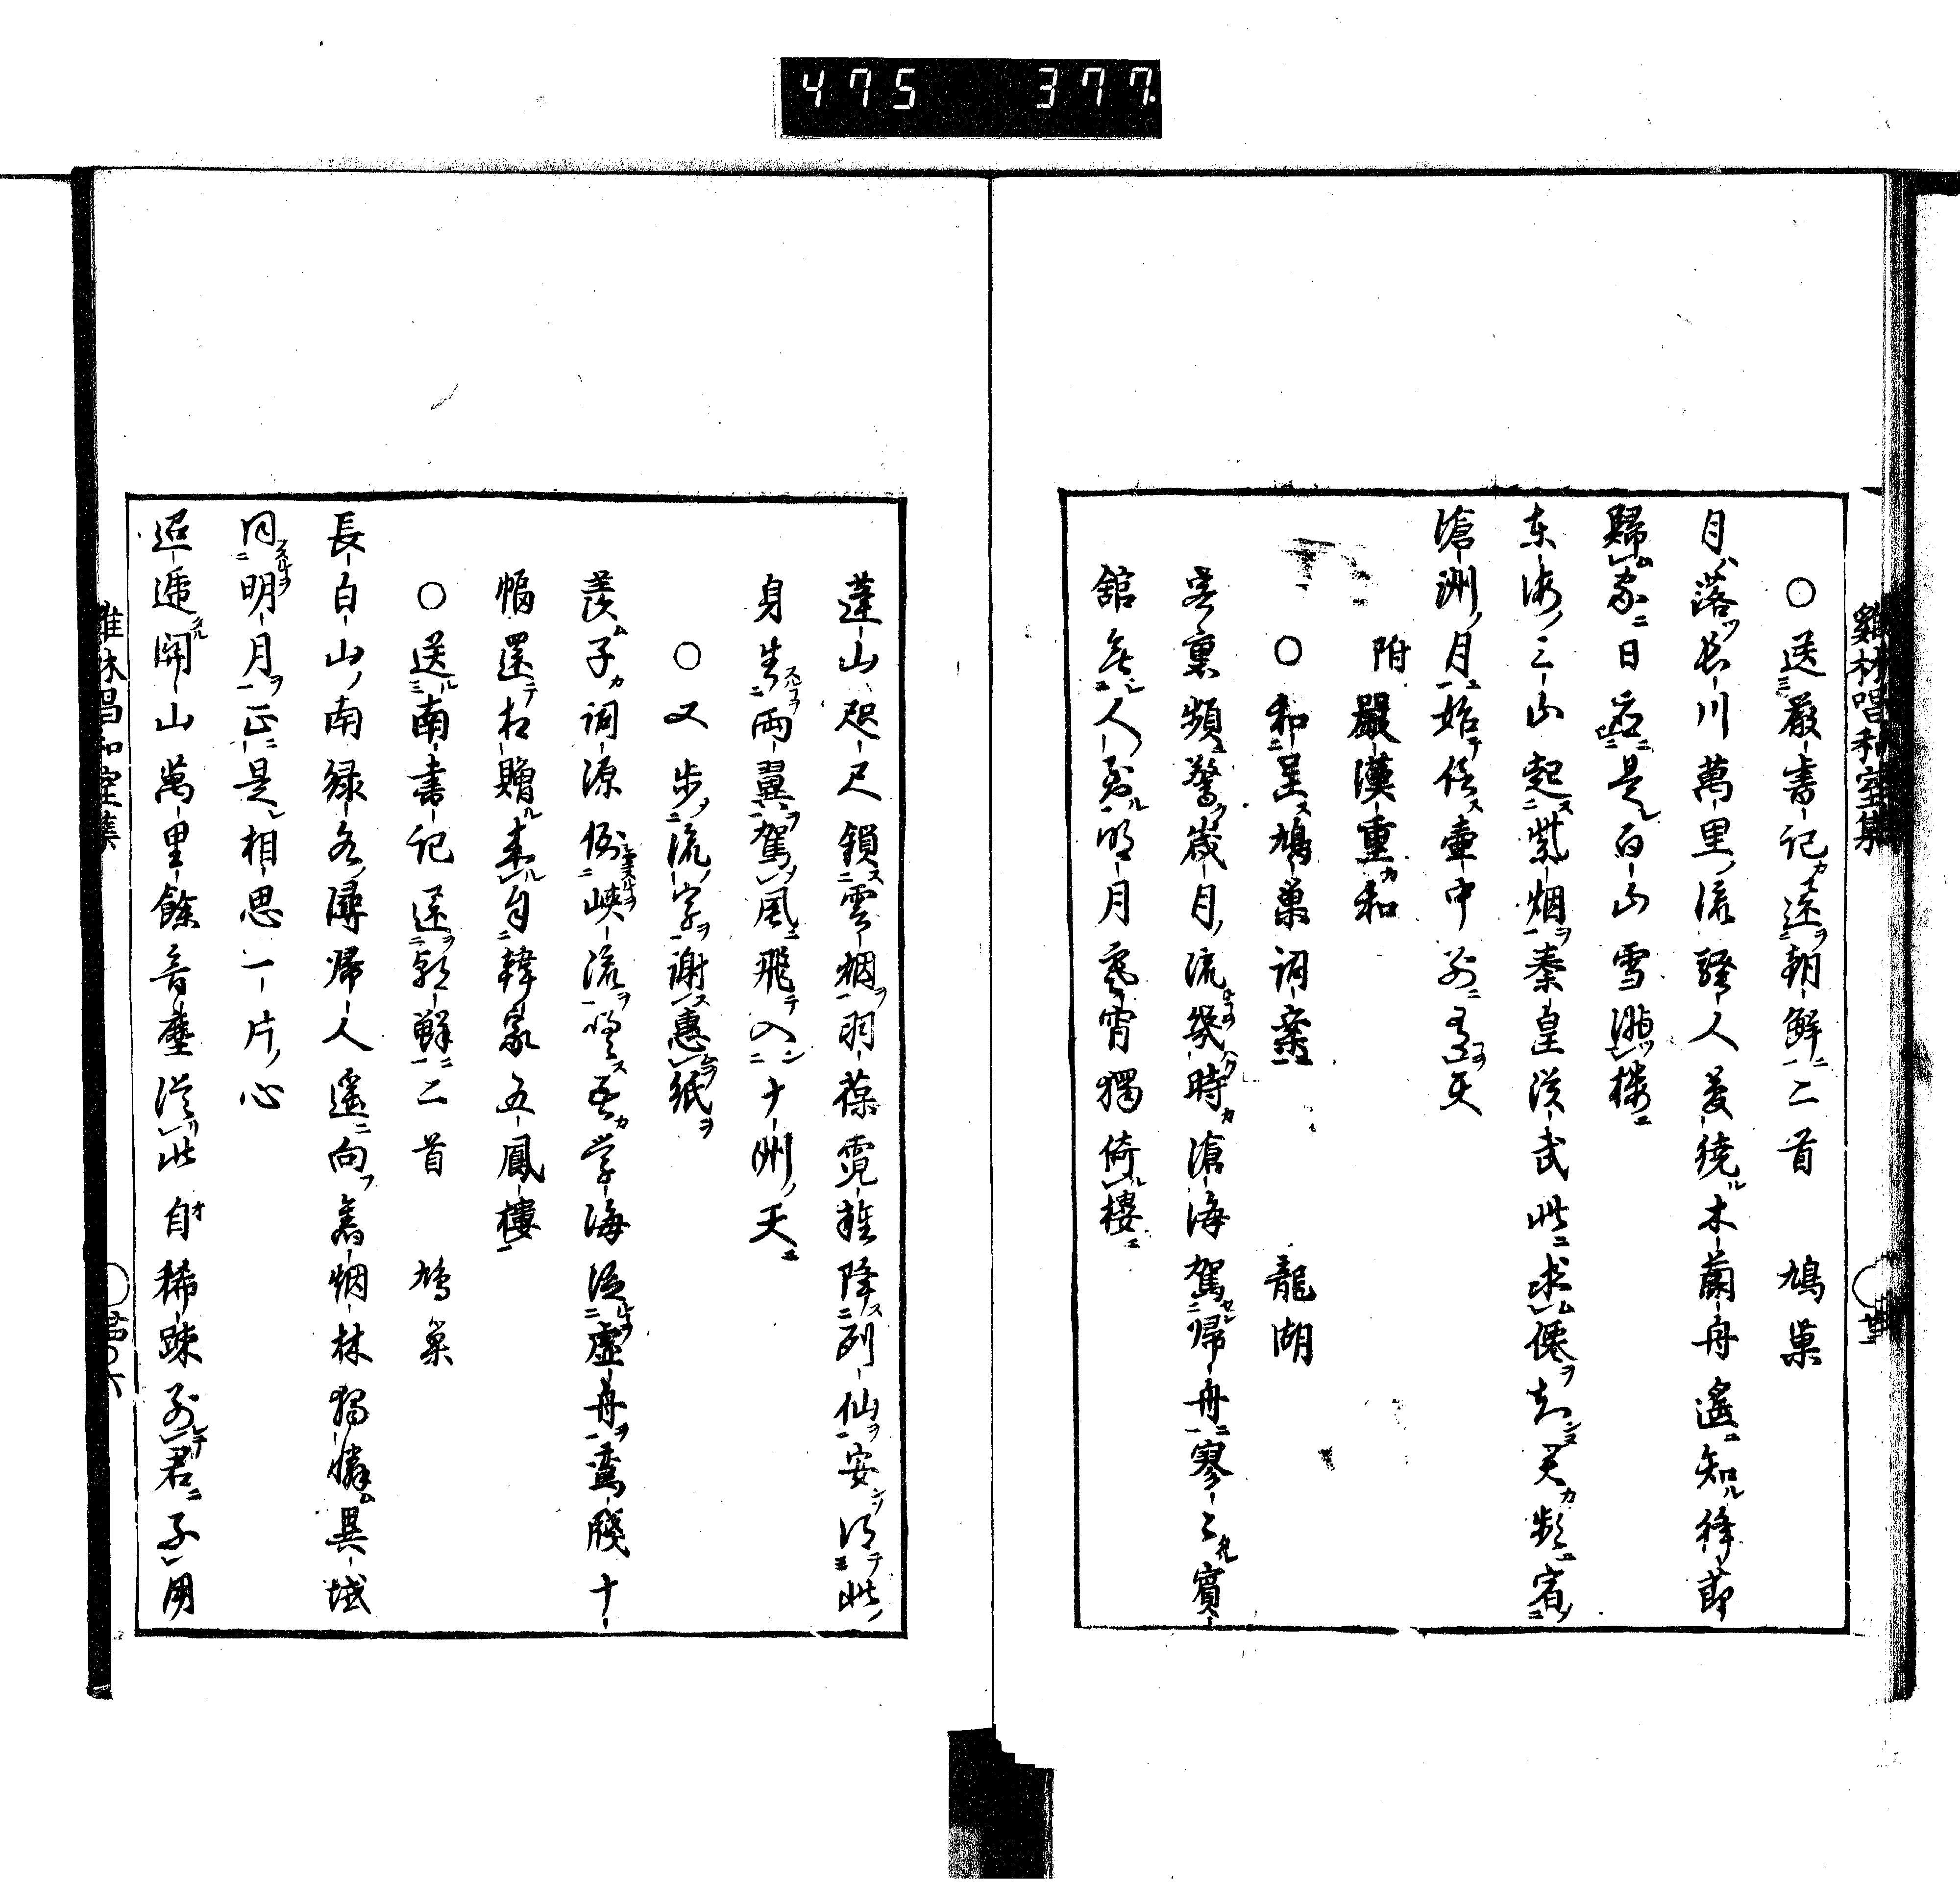 475 377
鷄林唱和室集
○送嚴書記還朝鮮二首 鳩巢
月落長川萬里流騷人夢繞木蘭舟遙知絳節
歸家日應是白山雪滿樓
東海三山起紫烟秦皇漢武此求僊
滄洲月始信壺中別有天
附嚴漢重和
○和呈鳩巢詞案 龍湖
客裏頻驚歲月流幾時滄海駕歸舟寥々賓
館無人到明月寒宵獨倚樓
蓬山咫尺鎖雲烟羽葆霓旌降列仙安得此
身生兩翼駕風飛入十州天
○又步流字謝惠紙
羨子詞源倒峽流嗟吾學海泛虛舟鸞牋十
幅還相贈來自韓家五鳳樓
○送南書記還朝鮮二首 鳩巢
長白山南綠水潯歸人遙向舊烟林獨憐異域
同明月正是相思一片心
迢遞關山萬里餘音塵從此自稀疎別君子用